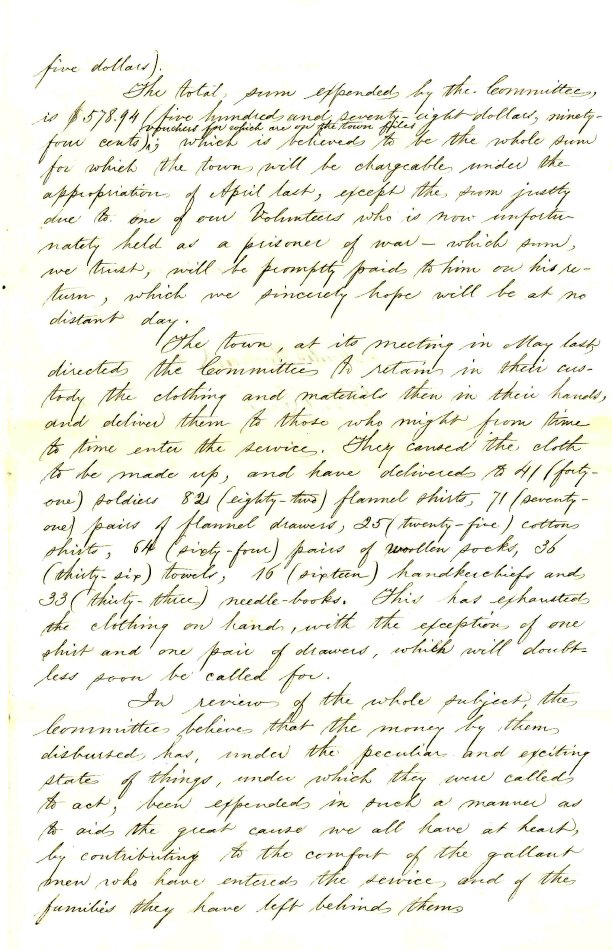 five dollars).
The total sum expended by the Committee,
is $578.94 (five hundred and seventy-eight dollars, ninety-
vouchers for which are on the town files
four cents); which is believed to be the whole sum
for which the town will be chargeable under the
appropriation of April last, except the sum justly
due to one of our Volunteers who is now unfortu-
nately held as a prisoner of war – which sum,
we trust, will be promptly paid to him on his re-
turn, which we sincerely hope will be at no
distant day.
The town, at its meeting in May last,
directed the Committee to retain in their cus-
tody the clothing and materials then in their hands,
and deliver them to those who might from time
to time enter the service. They caused the cloth
to be made up, and have delivered to 41 (forty-
one) soldiers 82 (eighty-two) flannel shirts, 71 (seventy-
one) pairs of flannel drawers, 25 (twenty-five) cotton
shirts, 64 (sixty-four) pairs of woollen socks, 36
(thirty-six) towels, 16 (sixteen) handkerchiefs and
33 (thirty-three) needle-books. This has exhausted
the clothing on hand, with the exception of one
shirt and one pair of drawers, which will doubt-
less soon be called for.
In review of the whole subject, the
Committee believe that the money by them
disbursed has, under the peculiar and exciting
state of things, under which they were called
to act, been expended in such a manner as
to aid the great cause we all have at heart,
by contributing to the comfort of the gallant
men who have entered the service, and of the
families they have left behind them